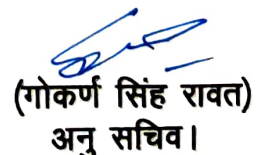 (गोकर्ण सिंह रावत)
अनु सचिव।